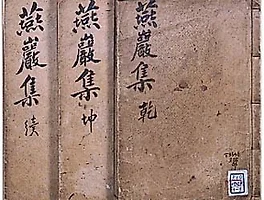 燕巖集 乾
燕巖集 坤
燕巖集 續